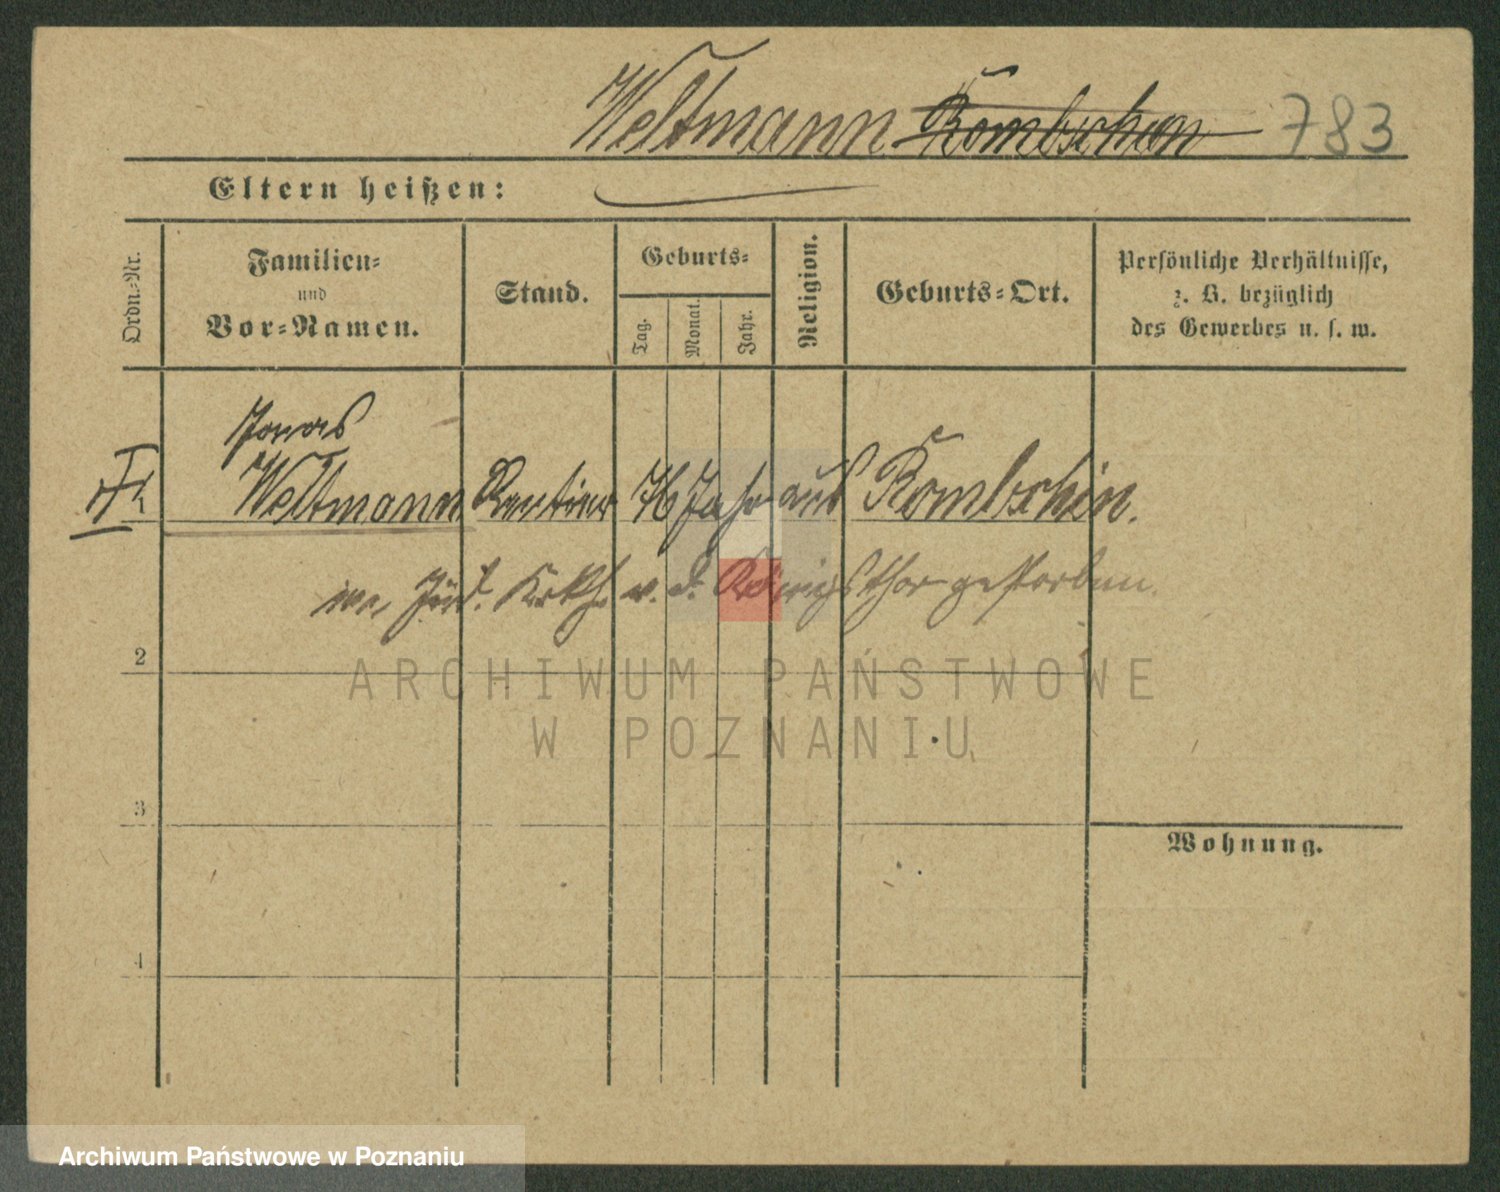 Weltmann Rombschin 783
Eltern heißen:
Ordn.-Nr.
Familien-
und
Vor-Namen.
Stand.
Geburts-
Tag.
Monat.
Jahr.
Religion.
Geburts-Ort.
Persönliche Verhältnisse,
z. B. bezüglich
des Gewerbes u. s. w.
Jonas
Weltmann Rentier 76 Jahr aus Rombschin.
im Jüd. Krkh. v. d. Königsthor gestorben.
2
3
4
Wohnung.
ARCHIWUM PAŃSTWOWE
W POZNANIU
Archiwum Państwowe w Poznaniu